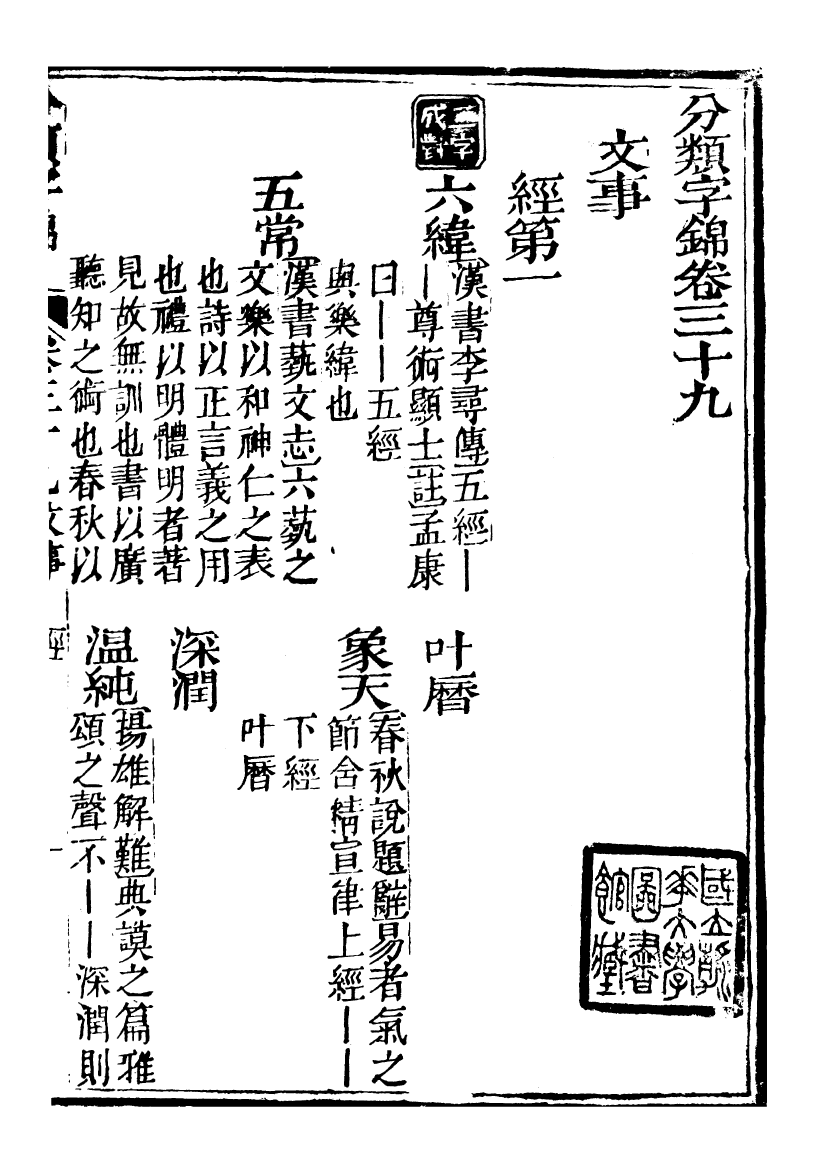 分類字錦卷三十九
文事
經第一
二字成對
六緯
漢書李尋傳五經｜
｜尊術顯士註孟康
曰｜｜五經
與樂緯也
五常
漢書藝文志六藝之
文樂以和神仁之表
也詩以正言義之用
也禮以明體明者著
見故無訓也書以廣
聽知之術也春秋以
叶曆
象天
春秋說題辭易者氣之
節含精宣律上經｜｜
下經
叶曆
深潤
溫純
揚雄解難典謨之篇雅
頌之聲不｜｜深潤則
卷三十九文事
經
一
國立清
華大學
圖書
館藏